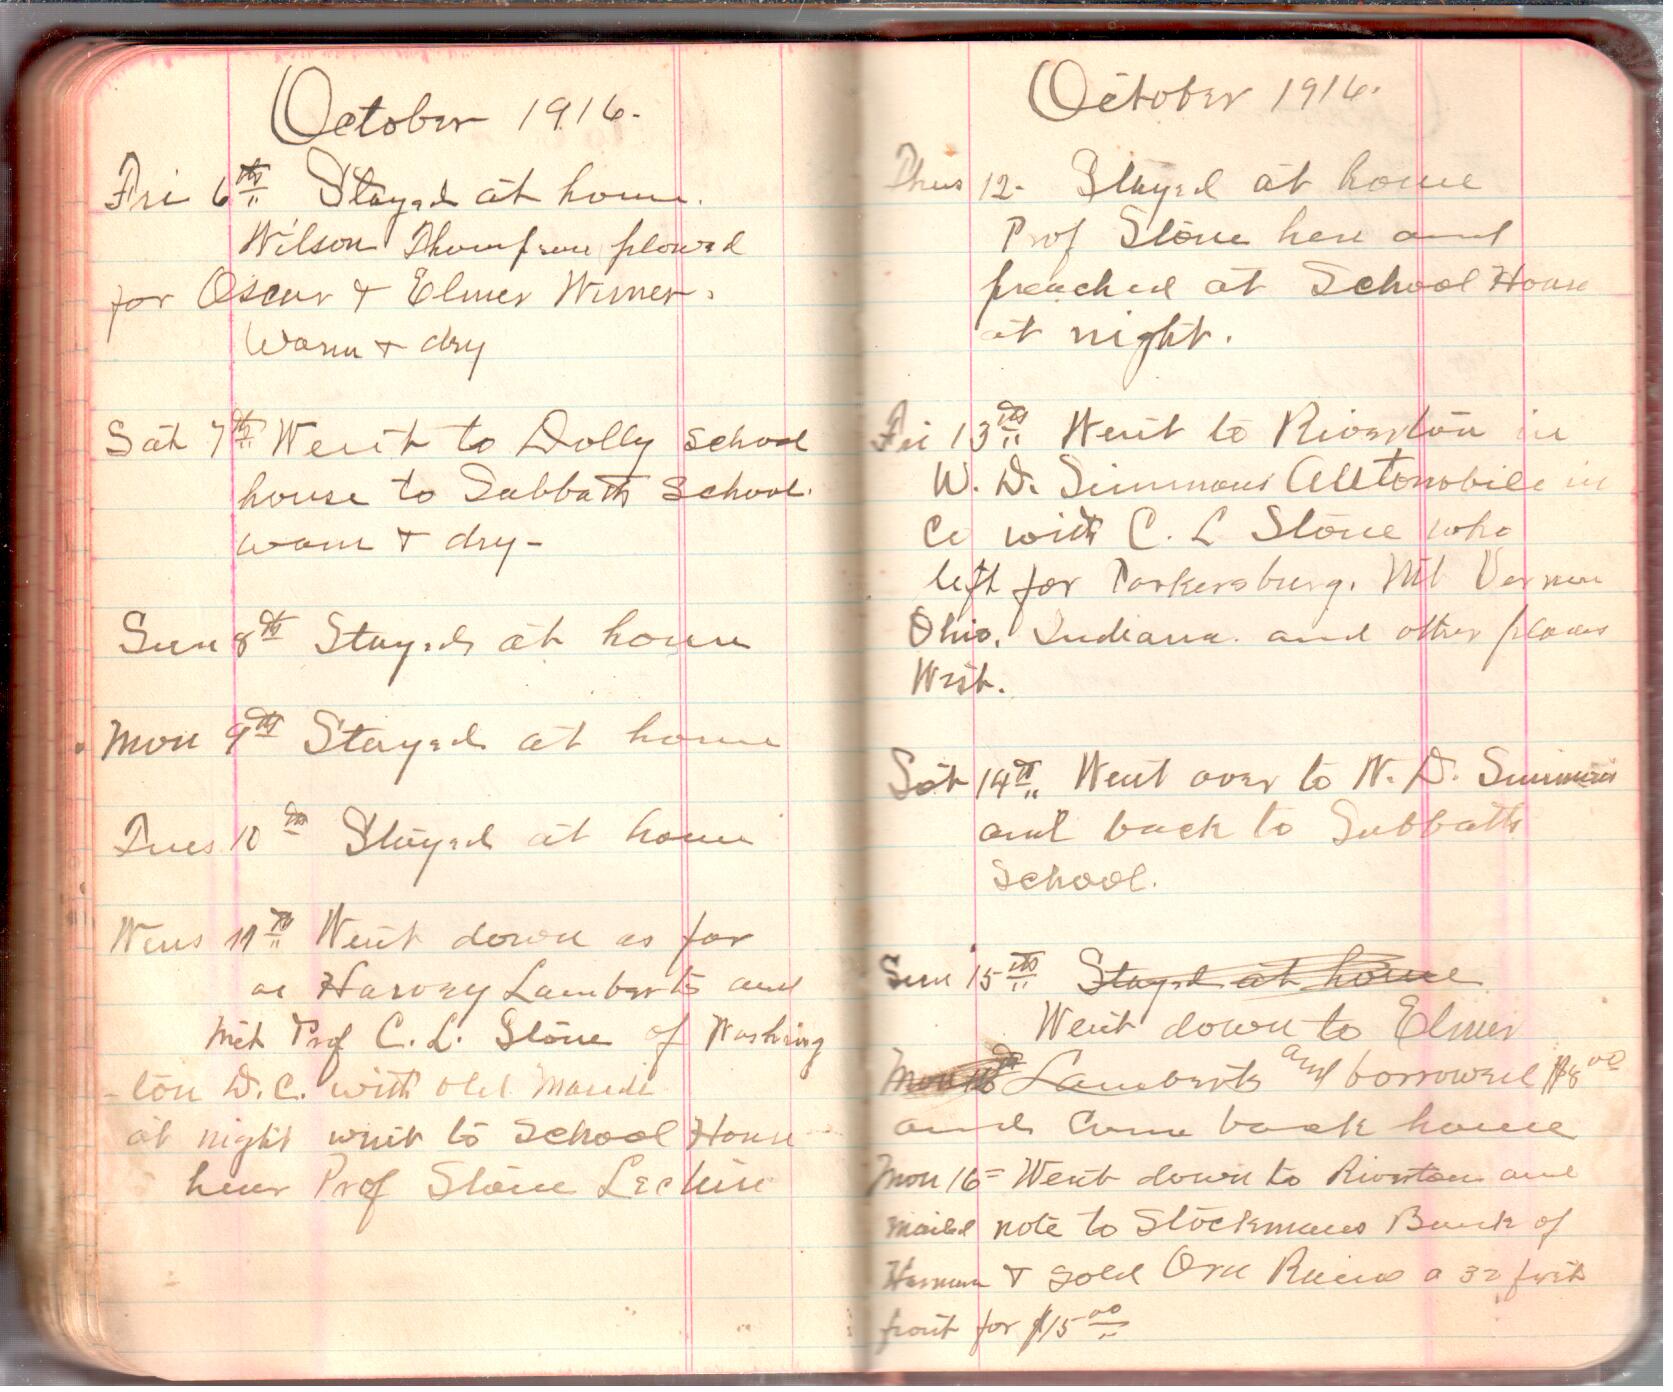 October 1916.
Fri 6th Stayed at home.
Wilson Thompson plowed
for Oscar & Elmer Wimer.
Warm & dry
Sat 7th Went to Dolly School
house to Sabbath School.
warm & dry-
Sun 8th Stayed at home
Mon 9th Stayed at home
Tues 10th Stayed at home
Wens 11th Went down as far
as Harvey Lamberts and
met Prof C. L. Stone of Washing
-ton D.C. with old Maude
at night went to School House
hear Prof Stone Lecture
October 1916.
Thus 12- Stayed at home
Prof Stone here and
preached at School House
at night.
Fri 13th Went to Riverton in
W. D. Simmons Automobile in
Co with C. L Stone who
left for Parkersburg. Mt Vernon
Ohio. Indiana. and other places
West.
Sat 14th Went over to W. D. Simmons
and back to Sabbath
School.
Sun 15th Stayed at home
Went down to Elmer
Mon 16th Lamberts and borrowed $8.00
and Come back home
Mon 16= Went down to Riverton and
mailed note to Stockmans Bank of
Harman & sold a 32 feet
front for $15.00